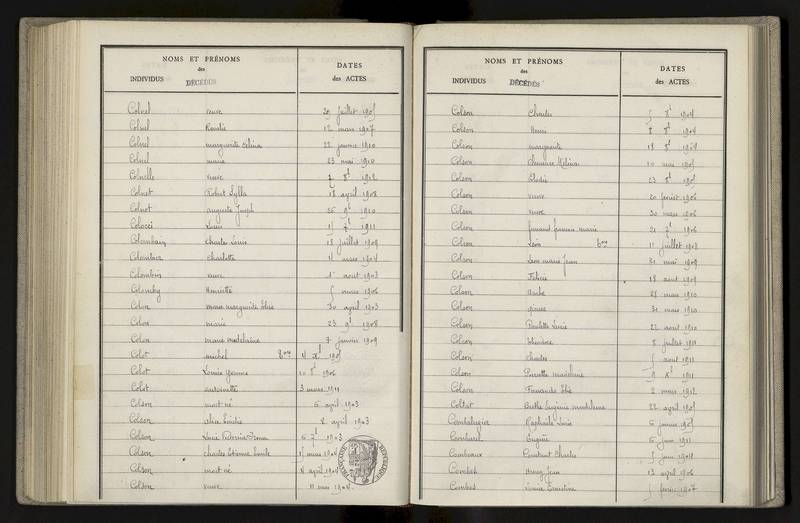 NOMS ET PRÉNOMS
des
INDIVIDUS DÉCÉDÉS
DATES
des ACTES
Colnel veuve 29 juillet 1905
Colnel 12 mars 1907
Colnel marguerite Célina 22 janvier 1910
Colnel marie 23 mai 1910
Colnelle veuve 7 8t 1912
Colnet Robert Sylla 18 avril 1908
Colnot auguste Joseph 26 9t 1910
Colocci Louis 15 7t 1911
Colombain Charles Louis 18 juillet 1909
Colombier Charlotte 4 mars 1904
Colombin veuve 1 aout 1903
Colomby Henriette 5 mars 1906
Colon marie marguerite Elise 30 avril 1903
Colon marie 23 9t 1908
Colon marie madelaine 7 janvier 1909
Colot michel
Colot 10 8t 1906
Colot antoinette 3 mars 1911
Colson mort né 6 avril 1903
Colson alice Emilie 2 avril 1903
Colson Lucie 6 7t 1903
Colson Charles Etienne mars 1904
Colson mort né 4 avril 1904
Colson veuve 11 mai 1904
NOMS ET PRÉNOMS
des
INDIVIDUS DÉCÉDÉS
DATES
des ACTES
Colson Charles 5 8t 1904
Colson Henri 8 8t 1904
Colson marguerite 18 8t 1904
Colson 10 mai 1905
Colson Elodie 23 8t 1905
Colson veuve 20 fevrier 1906
Colson veuve 30 mars 1906
Colson marie 21 7t 1906
Colson Léon 11 juillet 1908
Colson Léon marie Jean 31 mai 1909
Colson Félicie 18 aout 1909
Colson 28 mars 1910
Colson 31 mars 1910
Colson Paulette Lucie 22 aout 1910
Colson théodore 8 juillet 1911
Colson Charles 5 aout 1911
Colson Pierrette madeleine 9 1911
Colson Fernande 2 mars 1912
Coltat Berthe Eugénie madeleine 22 avril 1905
Combalusier Raphaële Louise 6 janvier 1905
Combarel Eugène 6 juin 1911
Combeaux Constant Charles 5 juin 1904
Combes Henry Jean 13 avril 1906
Combes Louise Ernestine 5 fevrier 1907